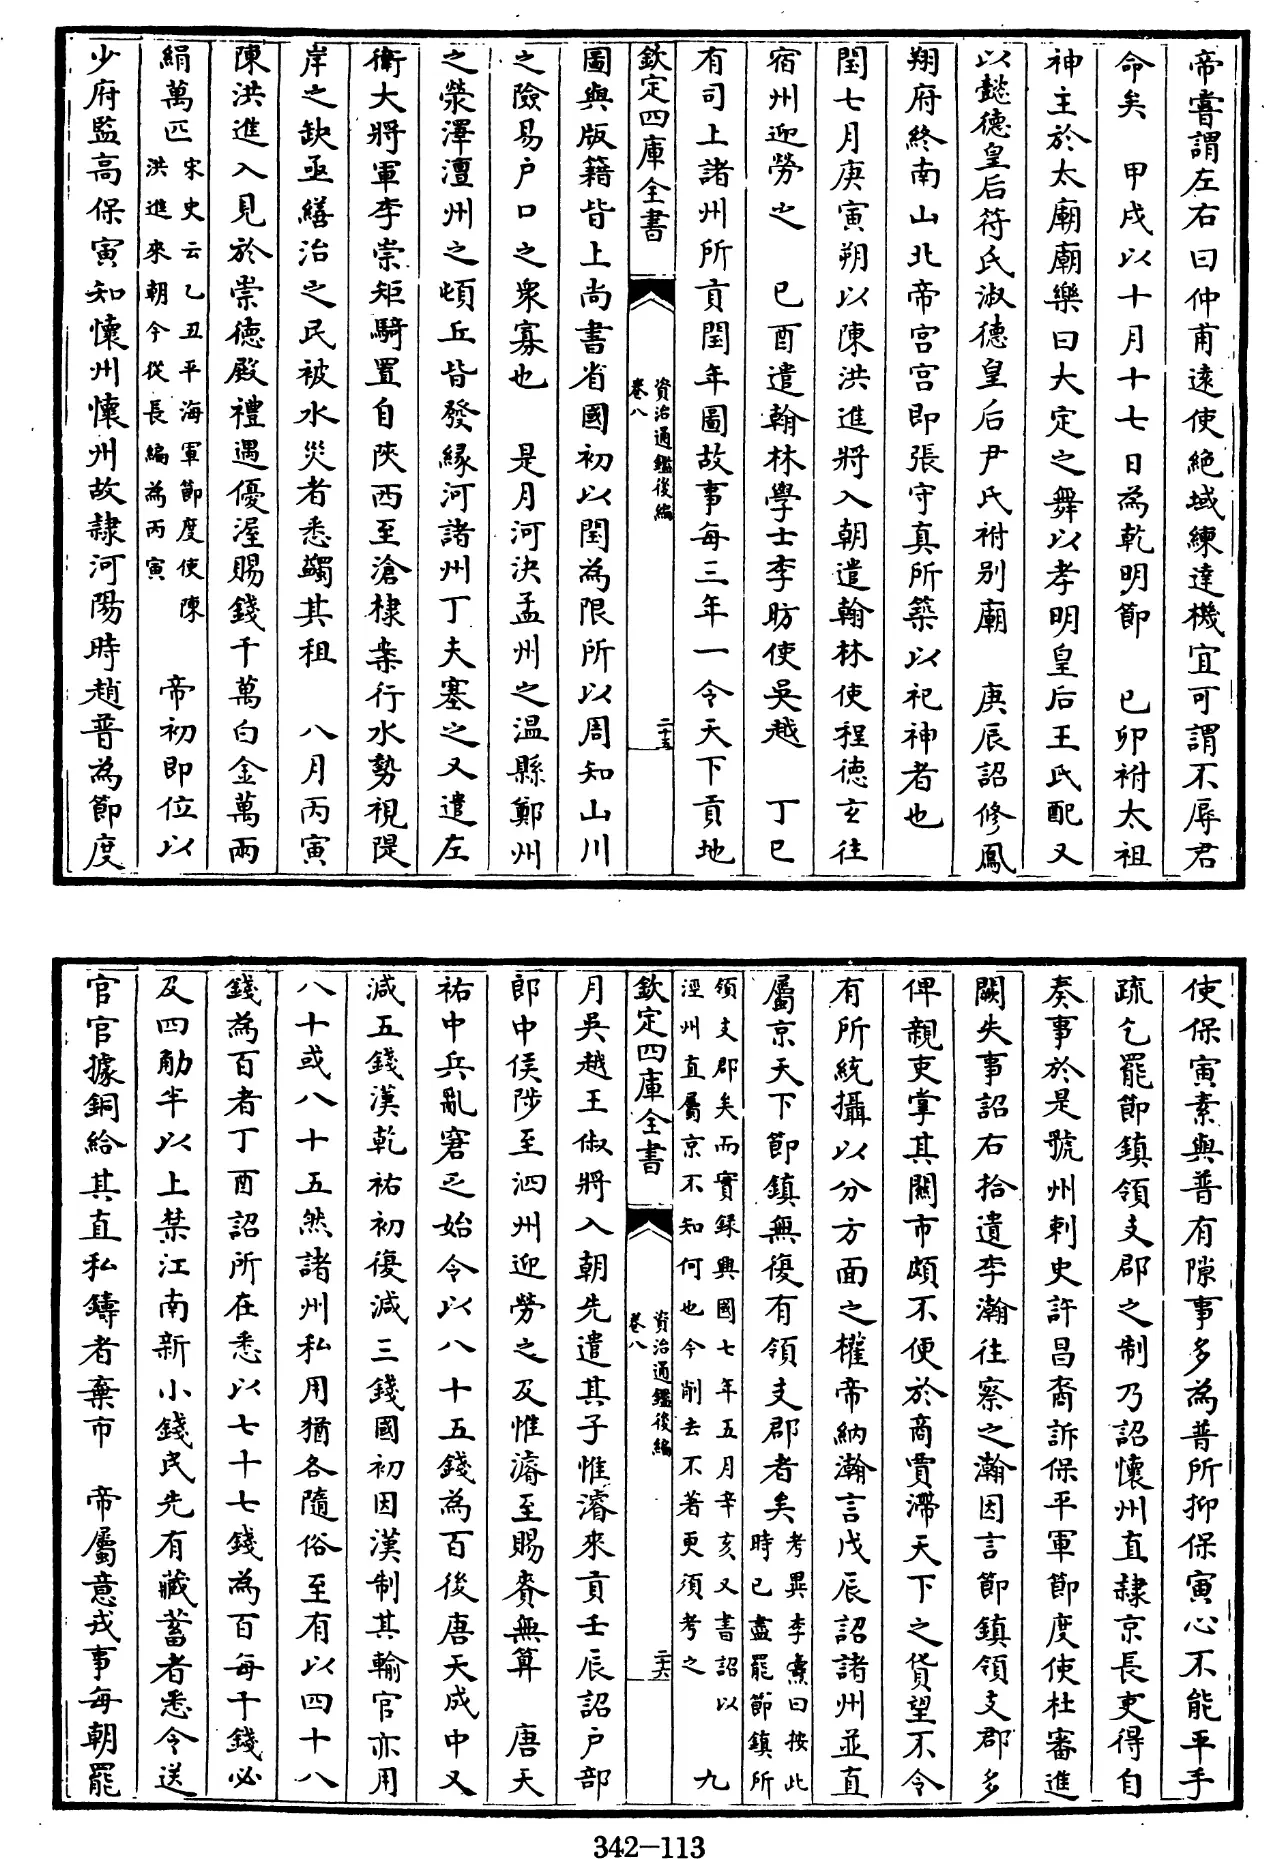 帝嘗謂左右曰仲甫遠使絶域練達機宜可謂不辱君
命矣　甲戌以十月十七日為乾明節　己卯祔太祖
神主於太廟廟樂曰大定之舞以孝明皇后王氏配又
以懿徳皇后符氏淑徳皇后尹氏祔别廟　庚辰詔修鳳
翔府終南山北帝宫宫即張守真所築以祀神者也
閏七月庚寅朔以陳洪進將入朝遣翰林使程徳玄往
宿州迎勞之　己酉遣翰林學士李昉使吳越　丁巳
有司上諸州所貢閏年圖故事每三年一令天下貢地
欽定四庫全書
資治通鑑後編
卷八
二十五
圖與版籍皆上尚書省國初以閏為限所以周知山川
之險易户口之衆寡也　是月河決孟州之温縣鄭州
之滎澤澶州之頓丘皆發緣河諸州丁夫塞之又遣左
衛大將軍李崇矩騎置自陜西至滄棣案行水勢視隄
岸之缺亟繕治之民被水災者悉蠲其租　八月丙寅
陳洪進入見於崇徳殿禮遇優渥賜錢千萬白金萬兩
絹萬匹宋史云乙丑平海軍節度使陳洪進來朝今從長編為丙寅　帝初即位以
少府監高保寅知懷州懷州故隷河陽時趙普為節度
使保寅素與普有隙事多為普所抑保寅心不能平手
疏乞罷節鎮領支郡之制乃詔懷州直隷京長吏得自
奏事於是虢州刺史許昌裔訴保平軍節度使杜審進
闕失事詔右拾遺李瀚往察之瀚因言節鎮領支郡多
俾親吏掌其關市頗不便於商賈滯天下之貨望不令
有所統攝以分方面之權帝納瀚言戊辰詔諸州並直
屬京天下節鎮無復有領支郡者矣考異李燾曰按此時已盡罷節鎮所
領支郡矣而實録興國七年五月辛亥又書詔以涇州直屬京不知何也今削去不著更須考之　九
欽定四庫全書
資治通鑑後編
卷八
二十六
月吳越王俶將入朝先遣其子惟濬來貢壬辰詔户部
郎中侯陟至泗州迎勞之及惟濬至賜賚無算　唐天
祐中兵亂窘乏始令以八十五錢為百後唐天成中又
減五錢漢乾祐初復減三錢國初因漢制其輸官亦用
八十或八十五然諸州私用猶各隨俗至有以四十八
錢為百者丁酉詔所在悉以七十七錢為百每千錢必
及四觔半以上禁江南新小錢民先有藏蓄者悉令送
官官據銅給其直私鑄者棄市　帝屬意戎事每朝罷
342—113